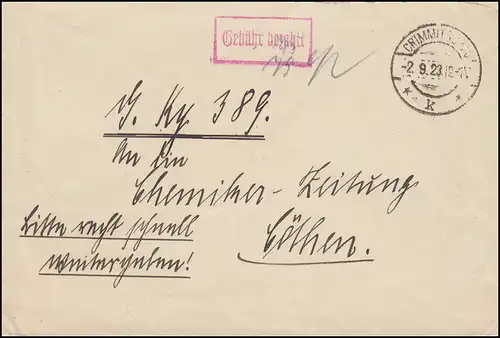 Gebühr bezahlt
CRIMMITSCHAU
-2.9.23.
* k
J. Kg. 389.
An die
Chemiker-Zeitung
Cöthen.
Bitte recht schnell
weitergeben!